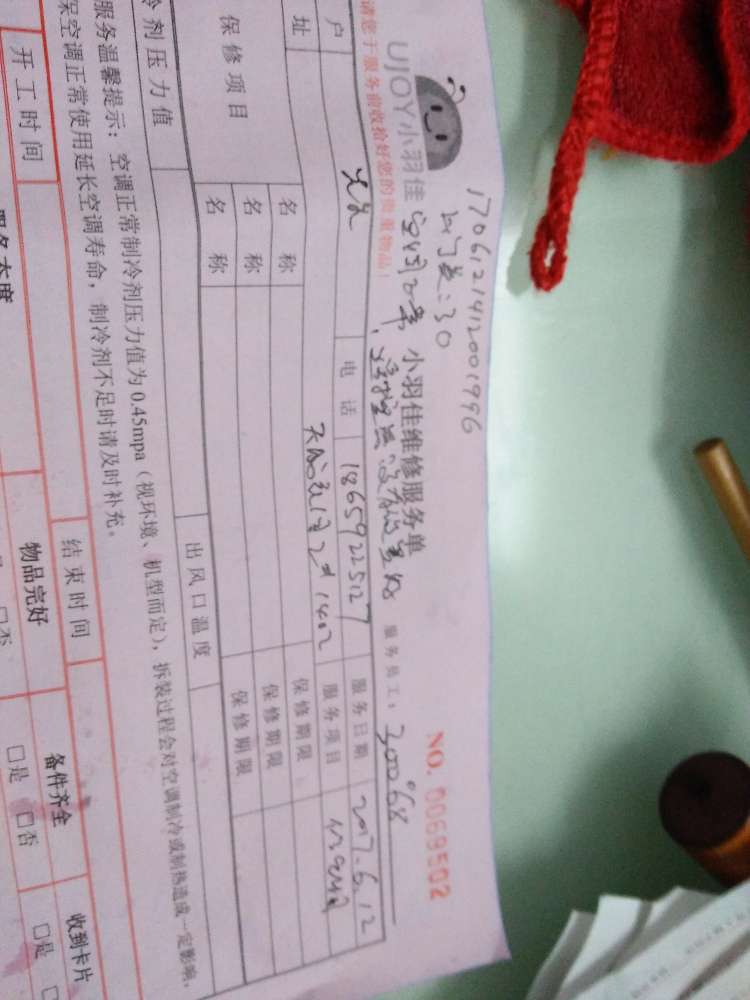 17061214120001996
上门费:30
UJOY小羽佳
小羽佳维修服务单
NO. 0069502
请您于服务前收拾好您的贵重物品!
服务员工: 300068
户
电 话 18659225127
服务日期 2017.6.12
址
1402
服务项目
保修项目
名 称
保修期限
名 称
保修期限
名 称
保修期限
冷剂压力值
出风口温度
服务温馨提示: 空调正常制冷剂压力值为0.45mpa(视环境、机型而定),拆装过程会对空调制冷或制热造成一定影响,
保空调正常使用延长空调寿命,制冷剂不足时请及时补充。
开工时间
结束时间
服务态度
物品完好
备件齐全
收到卡片
□否
□是 □否
□是